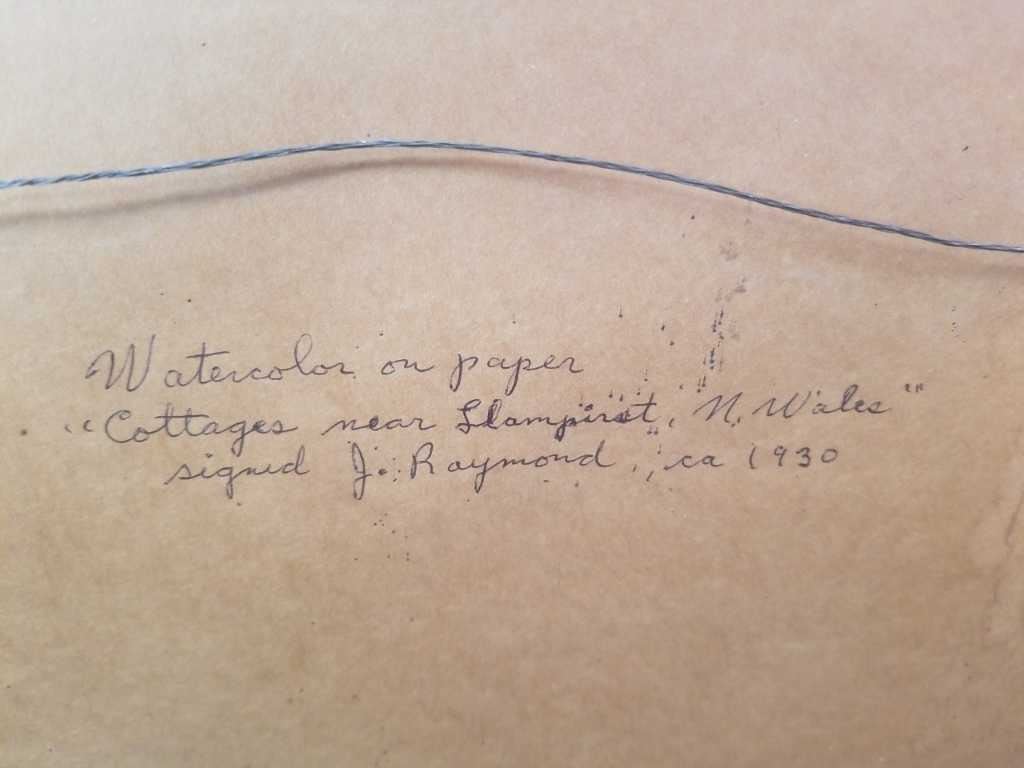 Watercolor on paper
"Cottages near Llampirst, N. Wales"
signed J. Raymond, ca 1930